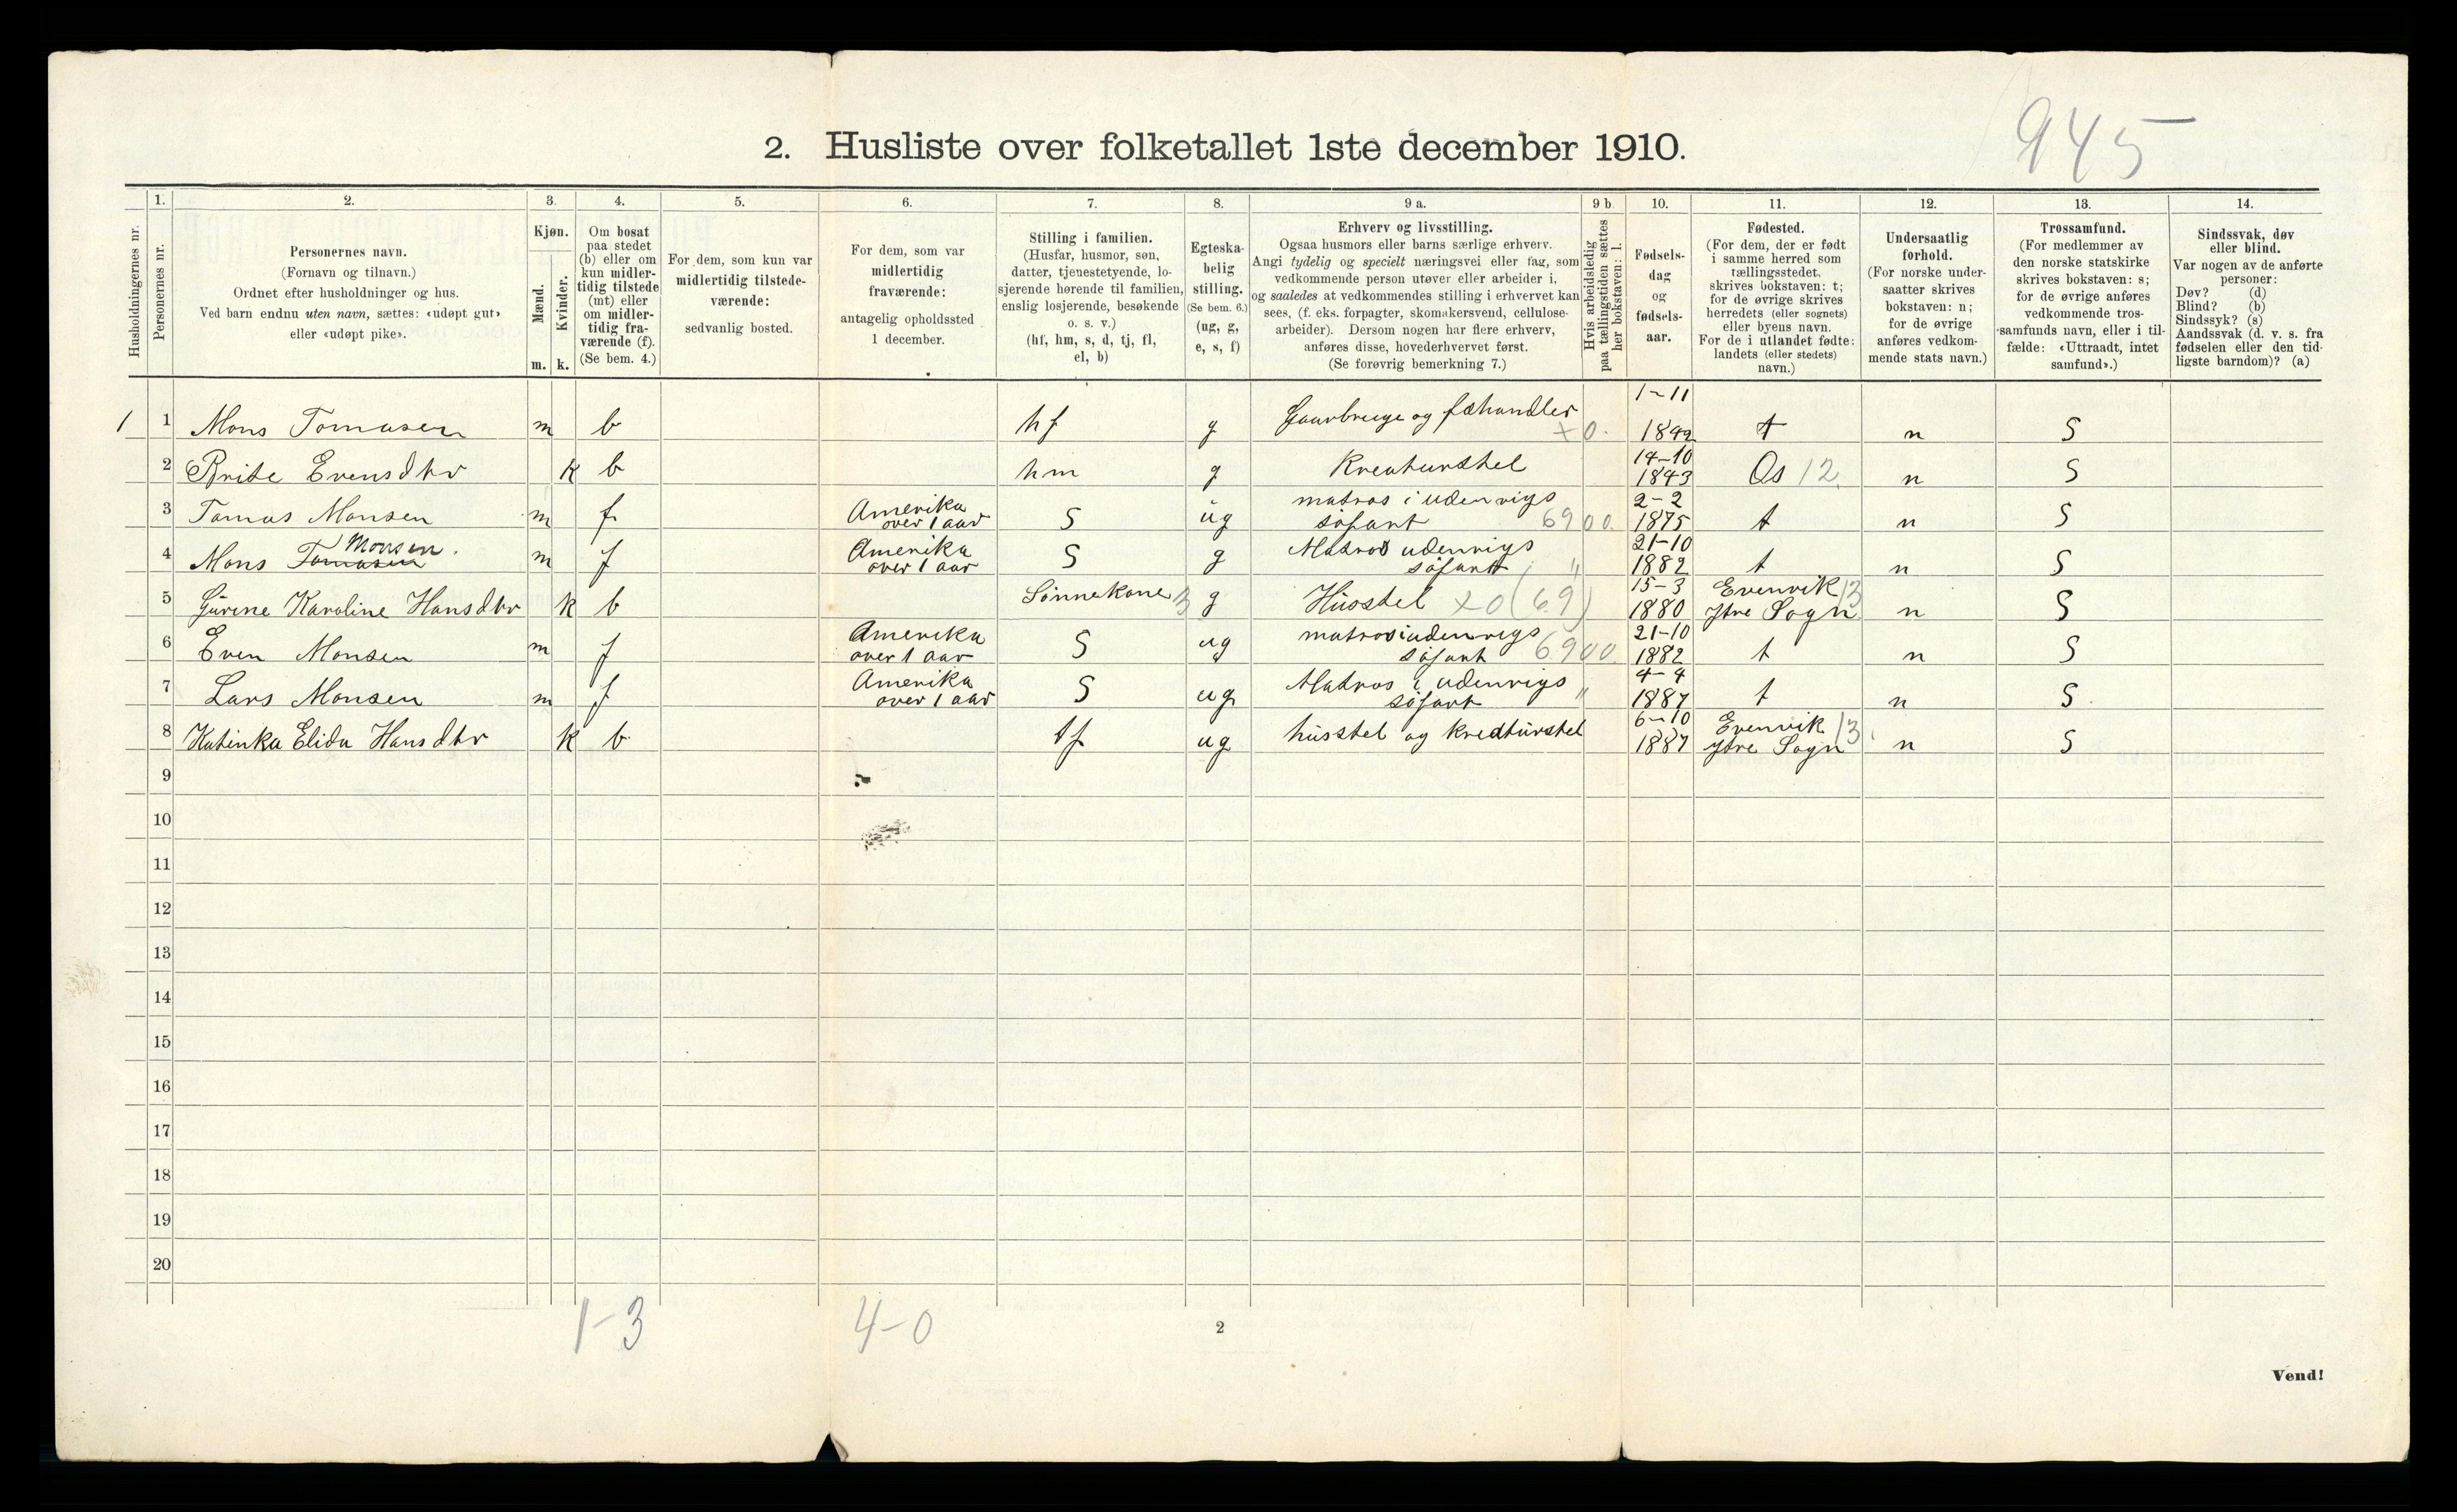 945
2. Husliste over folketallet 1ste december 1910.
Husholdningernes nr.
1.
Personernes nr.
2.
Personernes navn.
(Fornavn og tilnavn.)
Ordnet efter husholdninger og hus.
Ved barn endnu uten navn, sættes: «udøpt gut»
eller «udøpt pike».
3.
Kjøn.
Mænd.
Kvinder.
m. k.
4.
Om bosat
paa stedet
(b) eller om
kun midler-
tidig tilstede
(mt) eller
om midler-
tidig fra-
værende (f).
(Se bem. 4.)
5.
For dem, som kun var
midlertidig tilstede-
værende:
sedvanlig bosted.
6.
For dem, som var
midlertidig
fraværende:
antagelig opholdssted
1 december.
7.
Stilling i familien.
(Husfar, husmor, søn,
datter, tjenestetyende, lo-
sjerende hørende til familien,
enslig losjerende, besøkende
o. s. v.)
(hf, hm, s, d, tj, fl,
el, b)
8.
Egteska-
belig
stilling.
(Se bem. 6.)
(ug, g,
e, s, f)
9 a.
Erhverv og livsstilling.
Ogsaa husmors eller barns særlige erhverv.
Angi tydelig og specielt næringsvei eller fag, som
vedkommende person utøver eller arbeider i,
og saaledes at vedkommendes stilling i erhvervet kan
sees, (f. eks. forpagter, skomakersvend, cellulose-
arbeider). Dersom nogen har flere erhverv,
anføres disse, hovederhvervet først.
(Se forøvrig bemerkning 7.)
9 b.
Hvis arbeidsledig
paa tællingstiden sættes
her bokstaven: l.
10.
Fødsels-
dag
og
fødsels-
aar.
11.
Fødested.
(For dem, der er født
i samme herred som
tællingsstedet,
skrives bokstaven: t;
for de øvrige skrives
herredets (eller sognets)
eller byens navn.
For de i utlandet fødte:
landets (eller stedets)
navn.)
12.
Undersaatlig
forhold.
(For norske under-
saatter skrives
bokstaven: n;
for de øvrige
anføres vedkom-
mende stats navn.)
13.
Trossamfund.
(For medlemmer av
den norske statskirke
skrives bokstaven: s;
for de øvrige anføres
vedkommende tros-
samfunds navn, eller i til-
fælde: «Uttraadt, intet
samfund».)
14.
Sindssvak, døv
eller blind.
Var nogen av de anførte
personer:
Døv? (d)
Blind? (b)
Sindssyk? (s)
Aandssvak (d. v. s. fra
fødselen eller den tid-
ligste barndom)? (a)
1 1 Mons Tomasen m b hf g Gaarbruge og fæhandler x0. 1-11 1842 t n S
2 Brite Evensdtr k b hm g Kreaturstel 14-10 1843 Os 12 n S
3 Tomas Monsen m f Amerika over 1 aar S ug matros i udenrigs søfart 6900 2-2 1875 t n S
4 Mons Tomasen Monsen. m f Amerika over 1 aar S g Matros udenrigs søfart " 21-10 1882 t n S
5 Gurine Karoline Hansdtr k b Sønnekone 3 g Husstel x0 (69) 15-3 1880 Evenvik Ytre Sogn 13 n S
6 Even Monsen m f Amerika over 1 aar S ug matros i udenrigs søfart 6900 21-10 1882 t n S
7 Lars Monsen m f Amerika over 1 aar S ug Matros i udenrigs søfart " 4-4 1887 t n S
8 Katinka Elida Hansdtr k b tj ug husstel og kreaturstel 6-10 1887 Evenvik Ytre Sogn 13 n S
9
10
11
12
13
14
15
16
17
18
19
20
1-3 4-0
2
Vend!